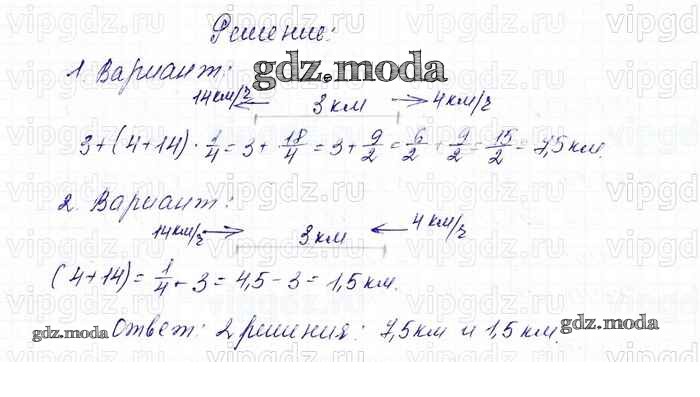 Решение:
1. Вариант:
gdz.moda
14км/г 3 км 4 км/г
3 + (4+14) · 1/4 = 3 + 18/4 = 3 + 9/2 = 6/2 + 9/2 = 15/2 = 7,5 км.
2. Вариант:
14км/г 3 км 4 км/г
(4+14) = 1/4 - 3 = 4,5 - 3 = 1,5 км.
gdz.moda Ответ: 2 решения: 7,5 км и 1,5 км. gdz.moda